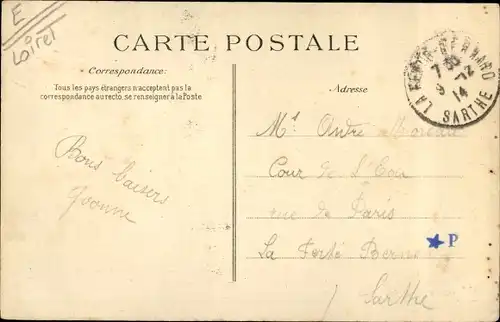 E
Loiret
CARTE POSTALE
Correspondance:
Tous les pays étrangers n'acceptent pas la
correspondance au recto, se renseigner à la Poste
Adresse
LA FERTÉ-BERNARD
7 30
9 - 12
14
SARTHE
Bons baisers
Yvonne
Mr Andre Moreau
Cour de l'Ecu
rue de Paris
La Ferté Bern
Sarthe
P